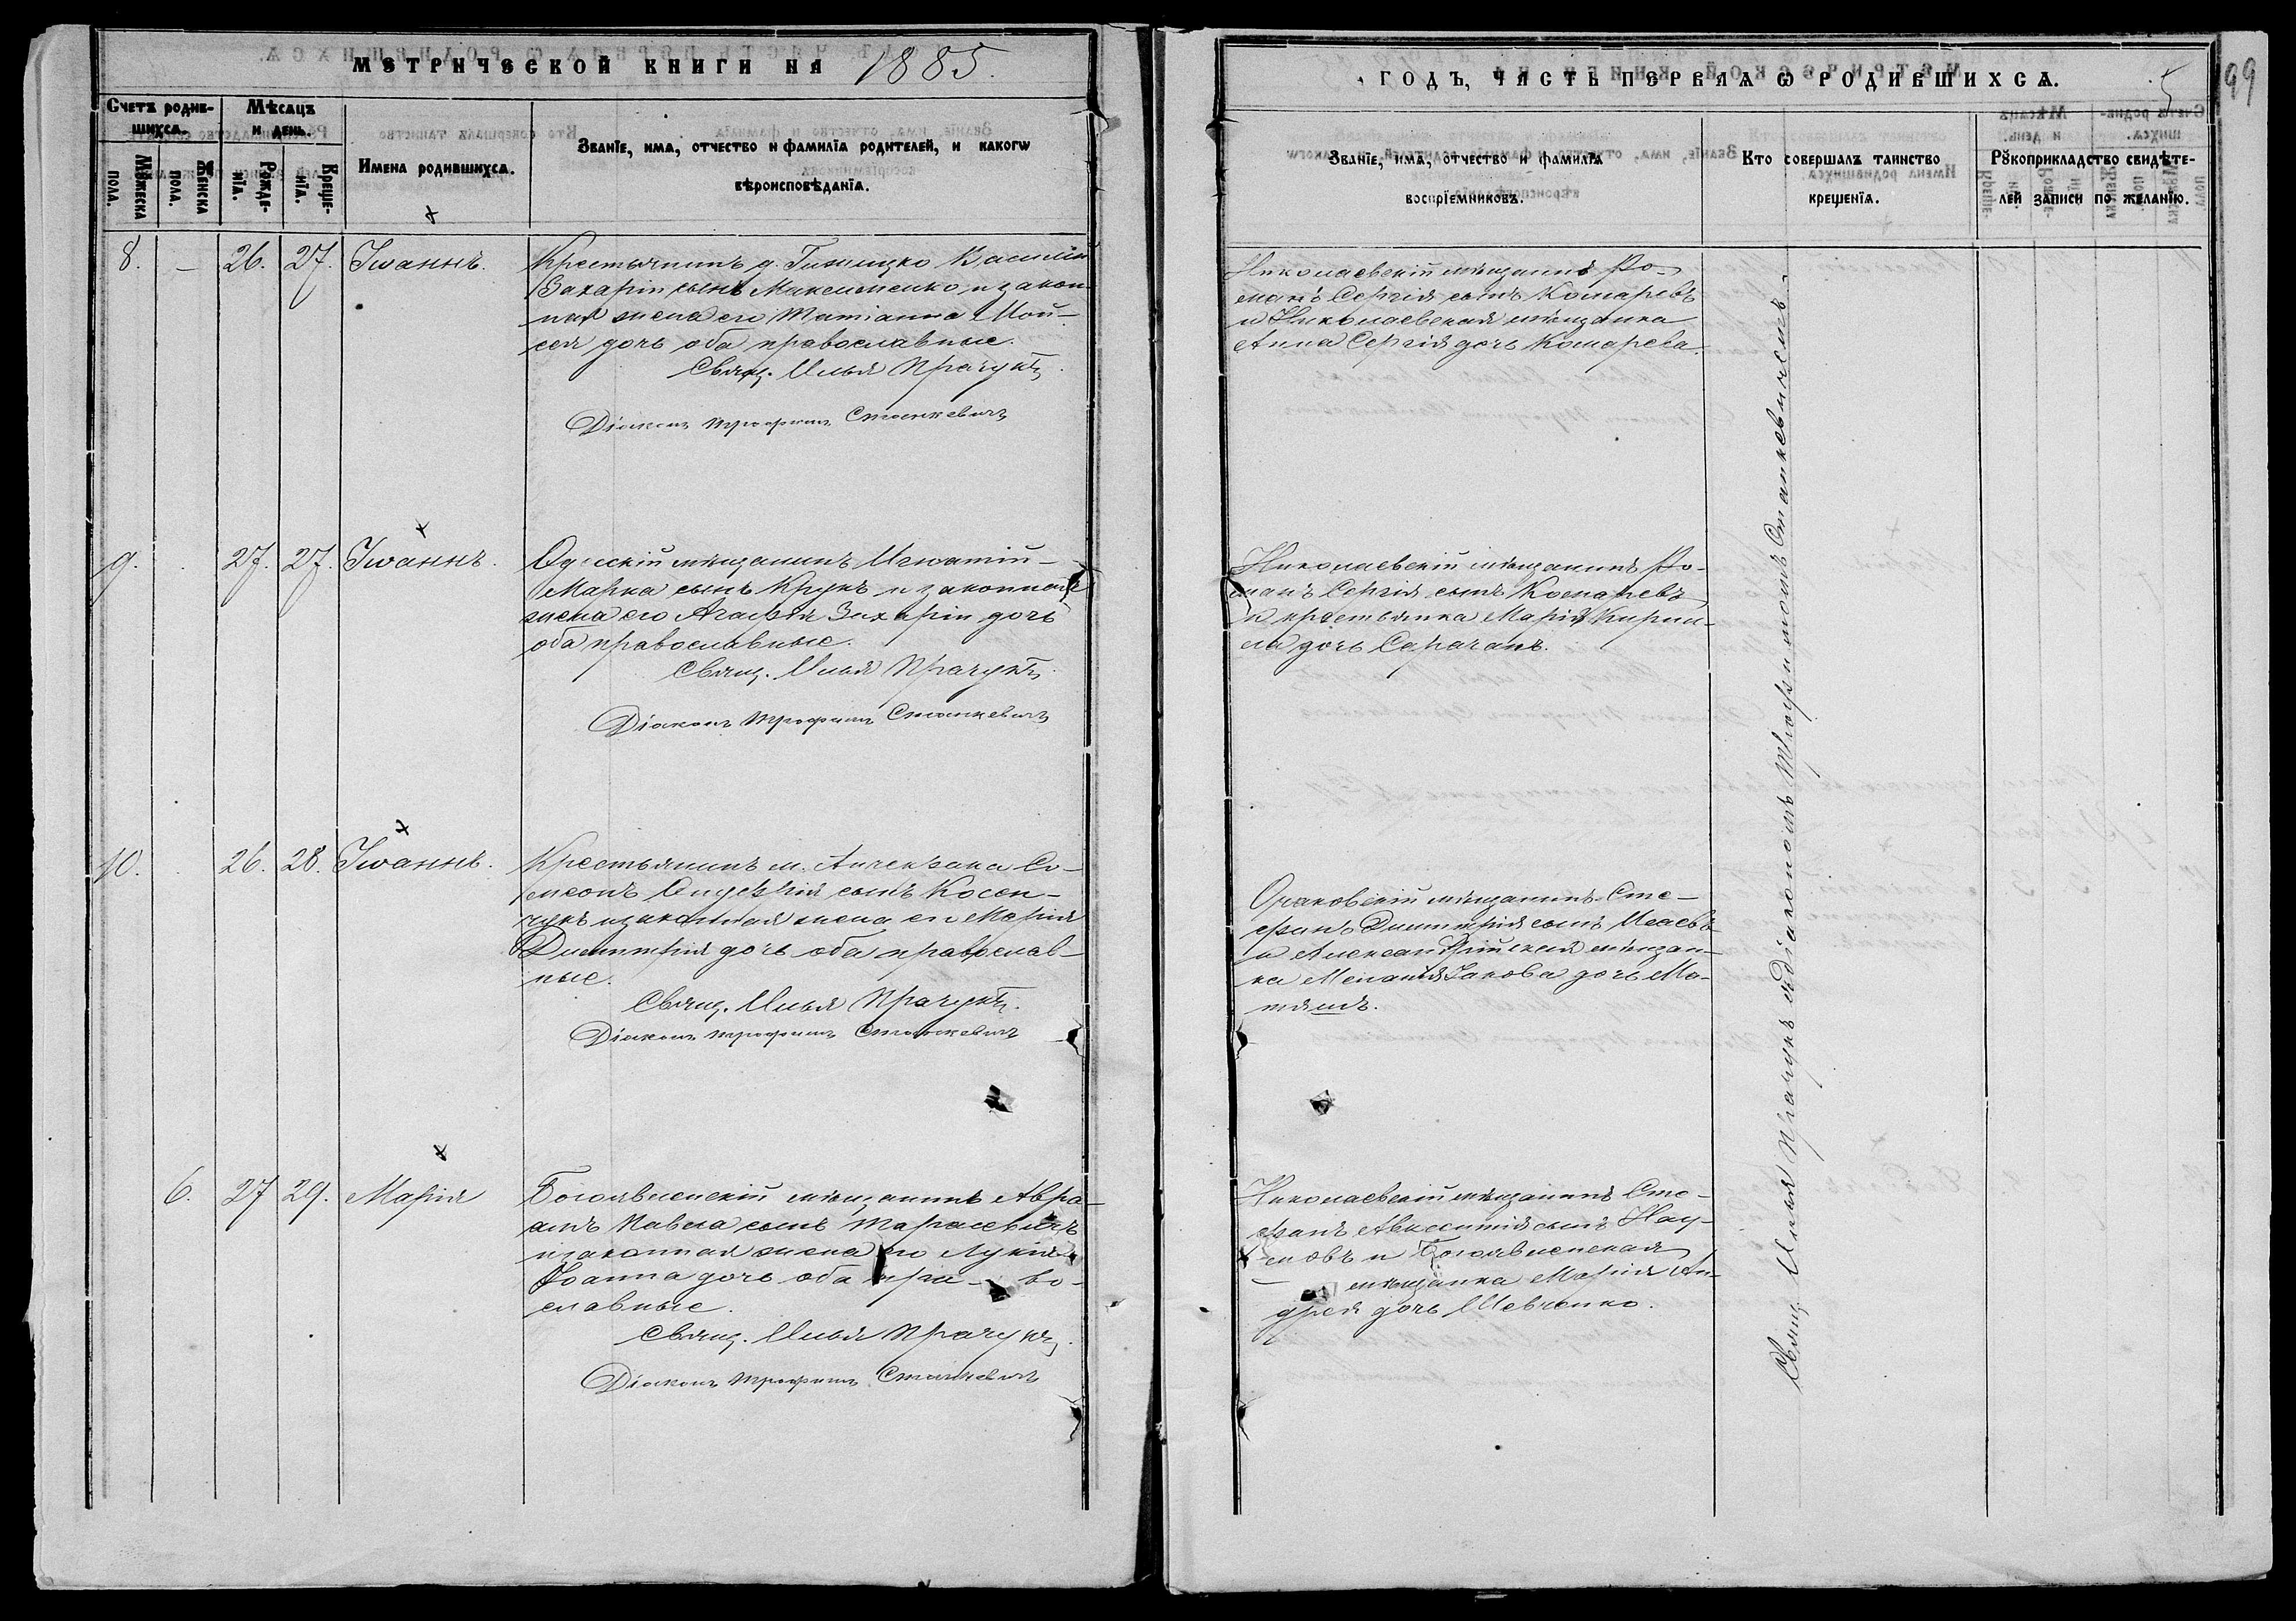 МЕТРИЧЕСКОЙ КНИГИ НА 1885.
Счетъ родив-
шихся.
Мѣсяцъ
и день.
Мужеска
пола.
Женска
пола.
Рожде-
нїѧ.
Креще-
нїѧ.
Имена родившихсѧ.
Званїе, имѧ, отчество и фамилїѧ родителей, и какогѡ
вѣроисповѣданїѧ.
8. — 26. 27. Іоаннъ.
Крестьянинъ д.
Захарія сынъ Максименко и закон
ная жена его Татіанна Мой-
сея дочь оба православные.
Свящ. Илья Прачукъ
Діаконъ Трофимъ Станкевичъ
9. 27. 27. Іоаннъ.
Одесскій мѣщанинъ Игнатій
Марка сынъ Крукъ и законная
жена его Агафія Захарія дочь
оба православные.
Свящ. Илья Прачукъ
Діаконъ Трофимъ Станкевичъ
10. 26. 28. Іоаннъ.
Крестьянинъ м. Ан
сынъ Косен-
чукъ и законная жена его Марія
Димитрія дочь оба православ-
ные.
Свящ. Илья Прачукъ.
Діаконъ Трофимъ Станкевичъ
6. 27 29. Марія
Богоявленскій мѣщанинъ Авра-
амъ Павла сынъ Тарасевичъ
и законная жена его Лукія
Іоанна дочь оба пра- во-
славные.
Свящ. Илья Прачукъ.
Діаконъ Трофимъ Станкевичъ
ГОДЪ, ЧАСТЬ ПЕРВАЯ Ѡ РОДИВШИХСѦ.
5
99
Званїе, имѧ, отчество и фамилїѧ
воспрїемниковъ.
Кто совершалъ таинство
крещенїѧ.
Рꙋкоприкладство свидѣте-
лей записи по желанїю.
Николаевскій мѣщанинъ Ро-
манъ Сергія сынъ Комаревъ
и Николаевская мѣщанка
Анна Сергія дочь Комарева.
Николаевскій мѣщанинъ Ро-
манъ Сергія сынъ Комаревъ
и крестьянка Марія Кирил-
ла дочь Сарачанъ.
Очаковскій мѣщанинъ Сте-
фанъ Димитрія сынъ Исаевъ
и Александрійская мѣщан-
ка Меланія Іакова дочь Ма-
тяшъ.
Николаевскій мѣщанинъ Сте-
фанъ Авксентія сынъ Нау-
мовъ и Богоявленская
мѣщанка Марія Ан-
дрея дочь Шевченко.
Свящ. Илья Прачукъ съ діакономъ Трофимомъ Станкевичемъ.